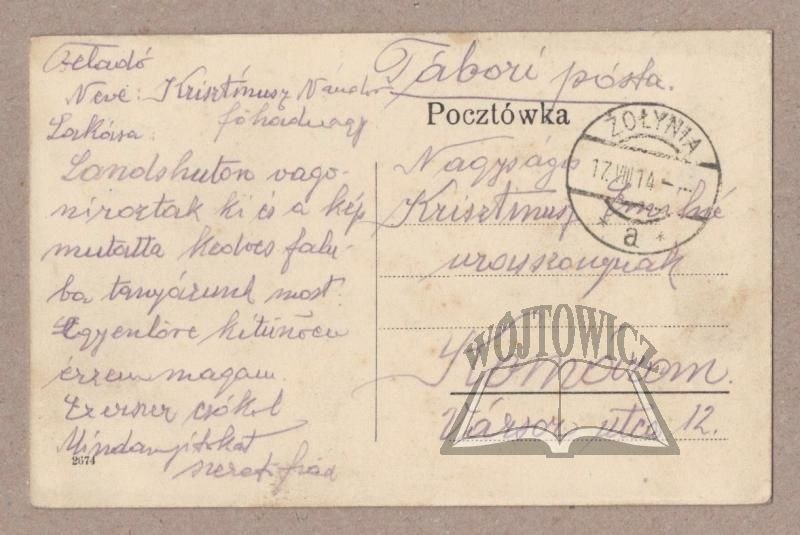 Feladó
Neve: Krisztinusz Nándor
főhadnagy
Lakása:
Landshuton vago-
niroztak ki és a kép
mutatta kedves falu-
ba tanyázunk most.
Egyenlőre kitünően
érzem magam.
Ezerszer csókol
Mindannyitokat
szerető fiad
2674
Tábori pósta.
Pocztówka
ŻOŁYNIA
17.VIII.14
* a *
Nagyságos
Krisztinusz
uroysszonynak
Komárom.
Vársor utca 12.
WÓJTOWICZ